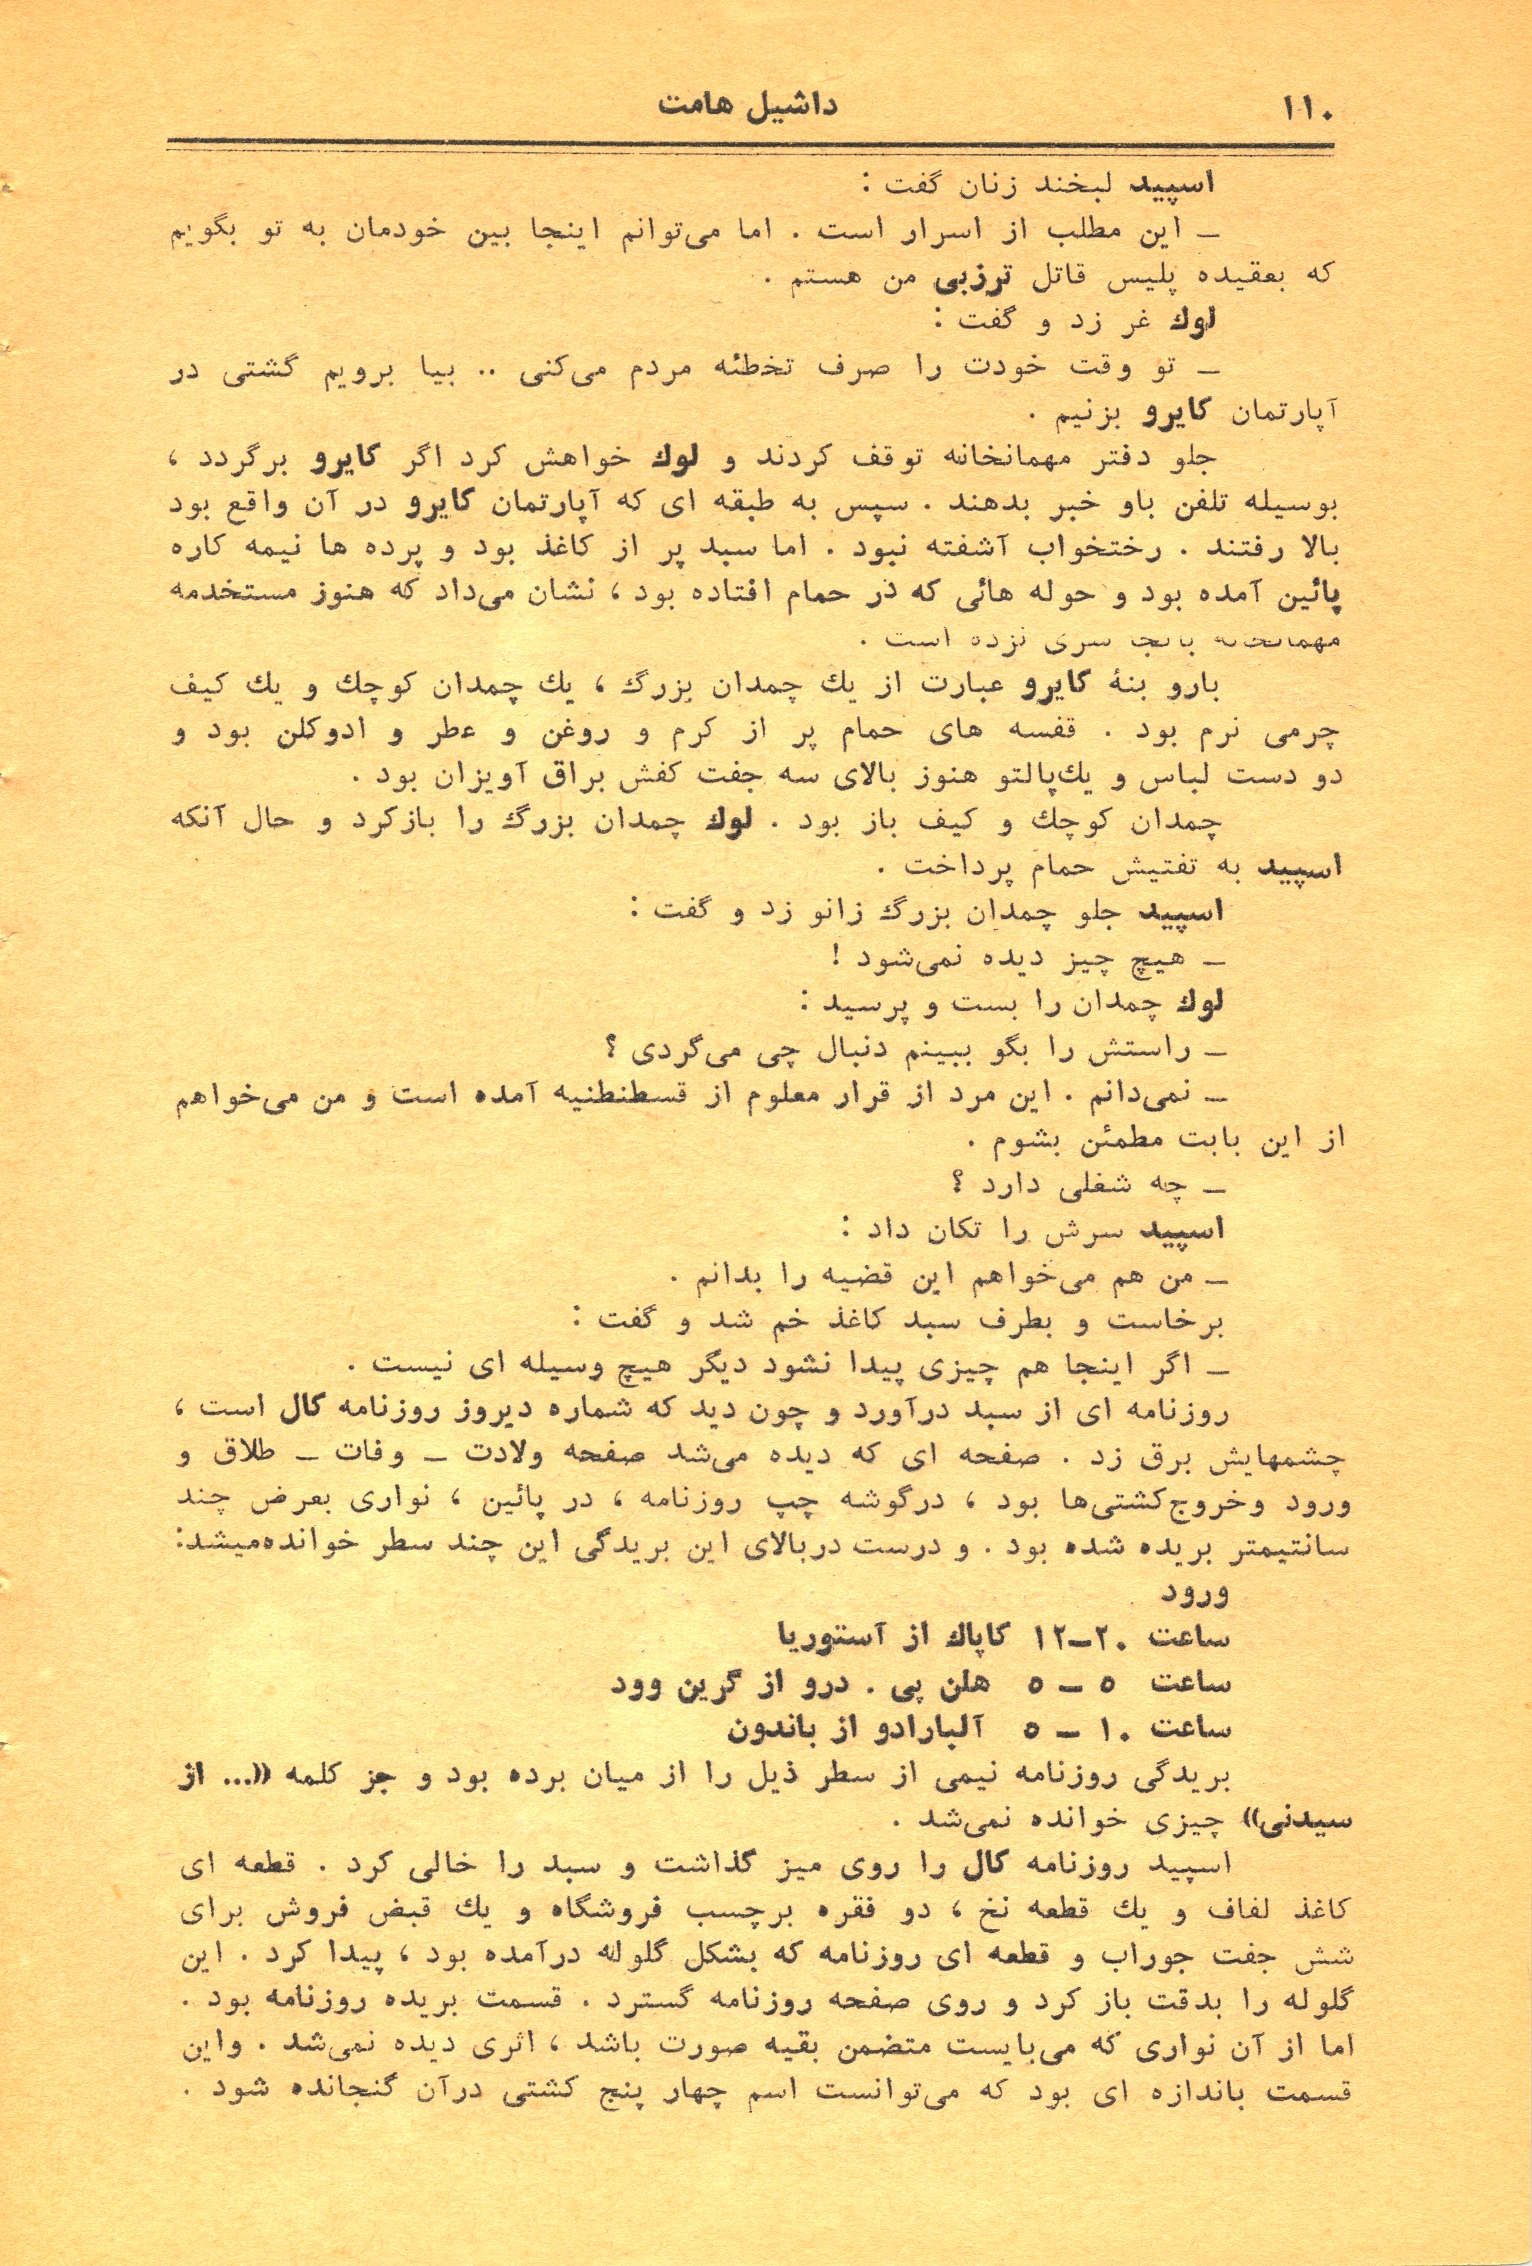 ۱۱۰ داشیل هامت
اسپید لبخند زنان گفت :
ـ این مطلب از اسرار است . اما می‌توانم اینجا بین خودمان به تو بگویم
که بعقیده پلیس قاتل ترزبی من هستم .
لوك غر زد و گفت :
ـ تو وقت خودت را صرف تخطئه مردم می‌کنی .. بیا برویم گشتی در
آپارتمان کایرو بزنیم .
جلو دفتر مهمانخانه توقف کردند و لوك خواهش کرد اگر کایرو برگردد ،
بوسیله تلفن باو خبر بدهند . سپس به طبقه ای که آپارتمان کایرو در آن واقع بود
بالا رفتند . رختخواب آشفته نبود . اما سبد پر از کاغذ بود و پرده ها نیمه کاره
پائین آمده بود و حوله هائی که در حمام افتاده بود ، نشان می‌داد که هنوز مستخدمه
مهمانخانه بآنجا سری نزده است .
بارو بنهٔ کایرو عبارت از يك چمدان بزرگ ، يك چمدان کوچك و يك کیف
چرمی نرم بود . قفسه های حمام پر از کرم و روغن و عطر و ادوکلن بود و
دو دست لباس و يك‌پالتو هنوز بالای سه جفت کفش براق آویزان بود .
چمدان کوچك و کیف باز بود . لوك چمدان بزرگ را بازکرد و حال آنکه
اسپید به تفتیش حمام پرداخت .
اسپید جلو چمدان بزرگ زانو زد و گفت :
ـ هیچ چیز دیده نمی‌شود !
لوك چمدان را بست و پرسید :
ـ راستش را بگو ببینم دنبال چی می‌گردی ؟
ـ نمی‌دانم . این مرد از قرار معلوم از قسطنطنیه آمده است و من می‌خواهم
از این بابت مطمئن بشوم .
ـ چه شغلی دارد ؟
اسپید سرش را تکان داد :
ـ من هم می‌خواهم این قضیه را بدانم .
برخاست و بطرف سبد کاغذ خم شد و گفت :
ـ اگر اینجا هم چیزی پیدا نشود دیگر هیچ وسیله ای نیست .
روزنامه ای از سبد درآورد و چون دید که شماره دیروز روزنامه کال است ،
چشمهایش برق زد . صفحه ای که دیده می‌شد صفحه ولادت ـ وفات ـ طلاق و
ورود وخروج‌کشتی‌ها بود ، درگوشه چپ روزنامه ، در پائین ، نواری بعرض چند
سانتیمتر بریده شده بود . و درست دربالای این بریدگی این چند سطر خوانده‌میشد:
ورود
ساعت ۲۰ـ۱۲ کاپاك از آستوریا
ساعت ۵ ـ ۵ هلن پی . درو از گرین وود
ساعت ۱۰ ـ ۵ آلبارادو از باندون
بریدگی روزنامه نیمی از سطر ذیل را از میان برده بود و جز کلمه «... از
سیدنی» چیزی خوانده نمی‌شد .
اسپید روزنامه کال را روی میز گذاشت و سبد را خالی کرد . قطعه ای
کاغذ لفاف و يك قطعه نخ ، دو فقره برچسب فروشگاه و يك قبض فروش برای
شش جفت جوراب و قطعه ای روزنامه که بشکل گلوله درآمده بود ، پیدا کرد . این
گلوله را بدقت باز کرد و روی صفحه روزنامه گسترد . قسمت بریده روزنامه بود .
اما از آن نواری که می‌بایست متضمن بقیه صورت باشد ، اثری دیده نمی‌شد . واین
قسمت باندازه ای بود که می‌توانست اسم چهار پنج کشتی درآن گنجانده شود .